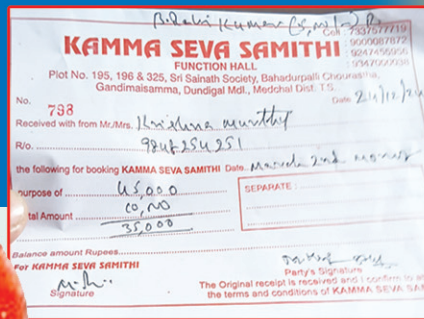 Cell : 7337577719
KAMMA SEVA SAMITHI : 9000087872
: 9247455956
FUNCTION HALL : 9347050038
Plot No. 195, 196 & 325, Sri Sainath Society, Bahadurpalli Chourastha,
Gandimaisamma, Dundigal Mdl., Medchal Dist. T.S.
No. 798 Date 24/12/24
Received with from Mr/Mrs. Krishna murthy
R/o. 9848254251
the following for booking KAMMA SEVA SAMITHI Date March 2nd
urpose of 45,000 SEPARATE :
tal Amount 10,000
35,000
Balance amount Rupees
For KAMMA SEVA SAMITHI
Party's Signature
Signature The Original receipt is received and I confirm to all
the terms and conditions of KAMMA SEVA SAM